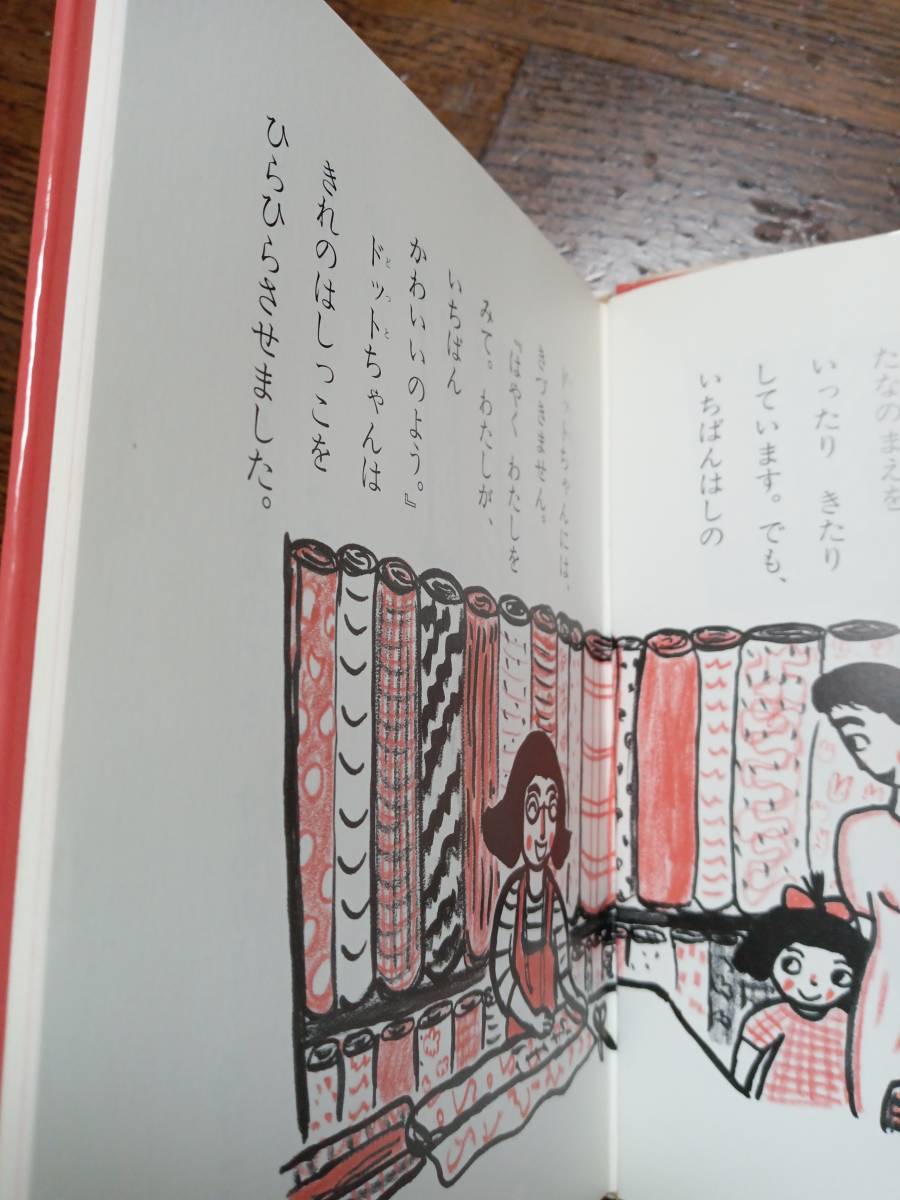 たなのまえを
いったり きたり
しています。でも、
いちばんはしの
ドットちゃんには、
きづきません。
『はやく わたしを
みて。わたしが、
いちばん
かわいいのよう。』
ドットちゃんは
きれのはしっこを
ひらひらさせました。